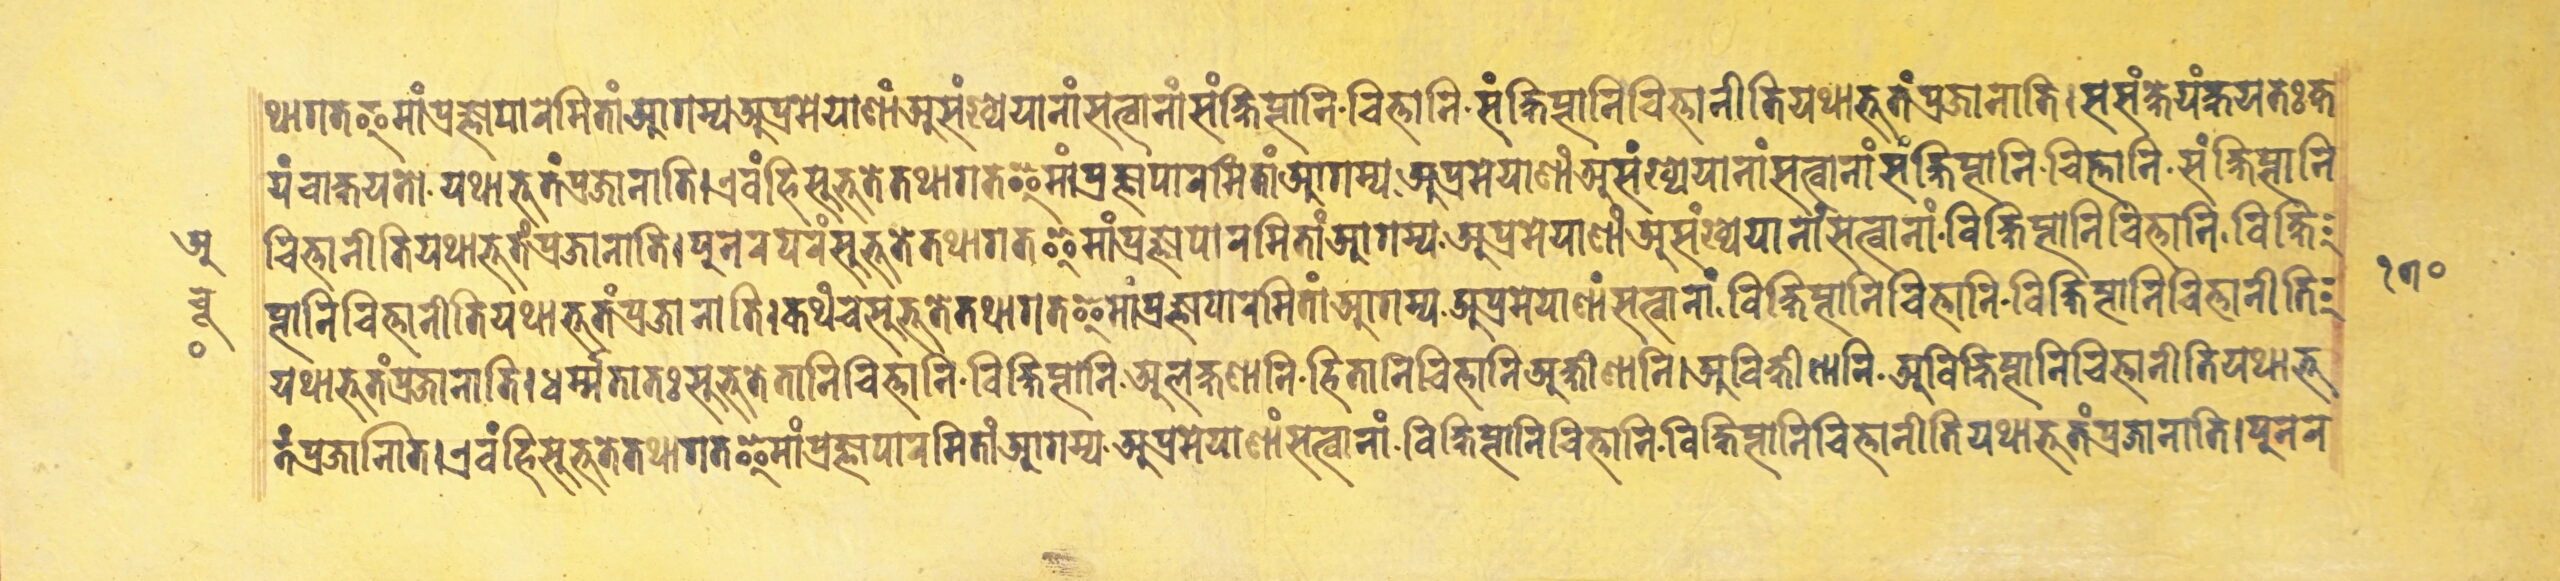 थागतइमांप्रज्ञापारमितांआगम्यअप्रमेयाणांअसंख्येयानांसत्वानांसंक्षिप्तानि·चित्तानि·संक्षिप्तानिचित्तानीतियथाभूतंप्रजानाति।ससंक्षेयंक्षयतःक्ष
यंचाक्षयतो·यथाभूतंप्रजानाति।एवंहिसुभूतेतथागतइमांप्रज्ञापारमितांआगम्य·अप्रमेयाणांअसंख्येयानांसत्वानांसंक्षिप्तानि·चित्तानि·संक्षिप्तानि
चित्तानीतियथाभूतंप्रजानाति।पुनरपरंसुभूतेतथागतइमांप्रज्ञापारमितांआगम्य·अप्रमेयाणांअसंख्येयानांसत्वानां·विक्षिप्तानिचित्तानि·विक्षि
प्तानिचित्तानीतियथाभूतंप्रजानाति।कथंचसुभूतेतथागतइमांप्रज्ञापारमितांआगम्य·अप्रमेयाणांसत्वानां·विक्षिप्तानिचित्तानि·विक्षिप्तानिचित्तानीति
यथाभूतंप्रजानाति।धर्म्मतातःसुभूतेतानिचित्तानि·विक्षिप्तानि·अलक्षणानि·हितानिचित्तानिअक्षीणानि।अविक्षीणानि·अविक्षिप्तानिचित्तानीतियथाभू
तंप्रजानाति।एवंहिसुभूतेतथागतइमांप्रज्ञापारमितांआगम्य·अप्रमेयाणांसत्वानां·विक्षिप्तानिचित्तानि·विक्षिप्तानिचित्तानीतियथाभूतंप्रजानाति।पुनर